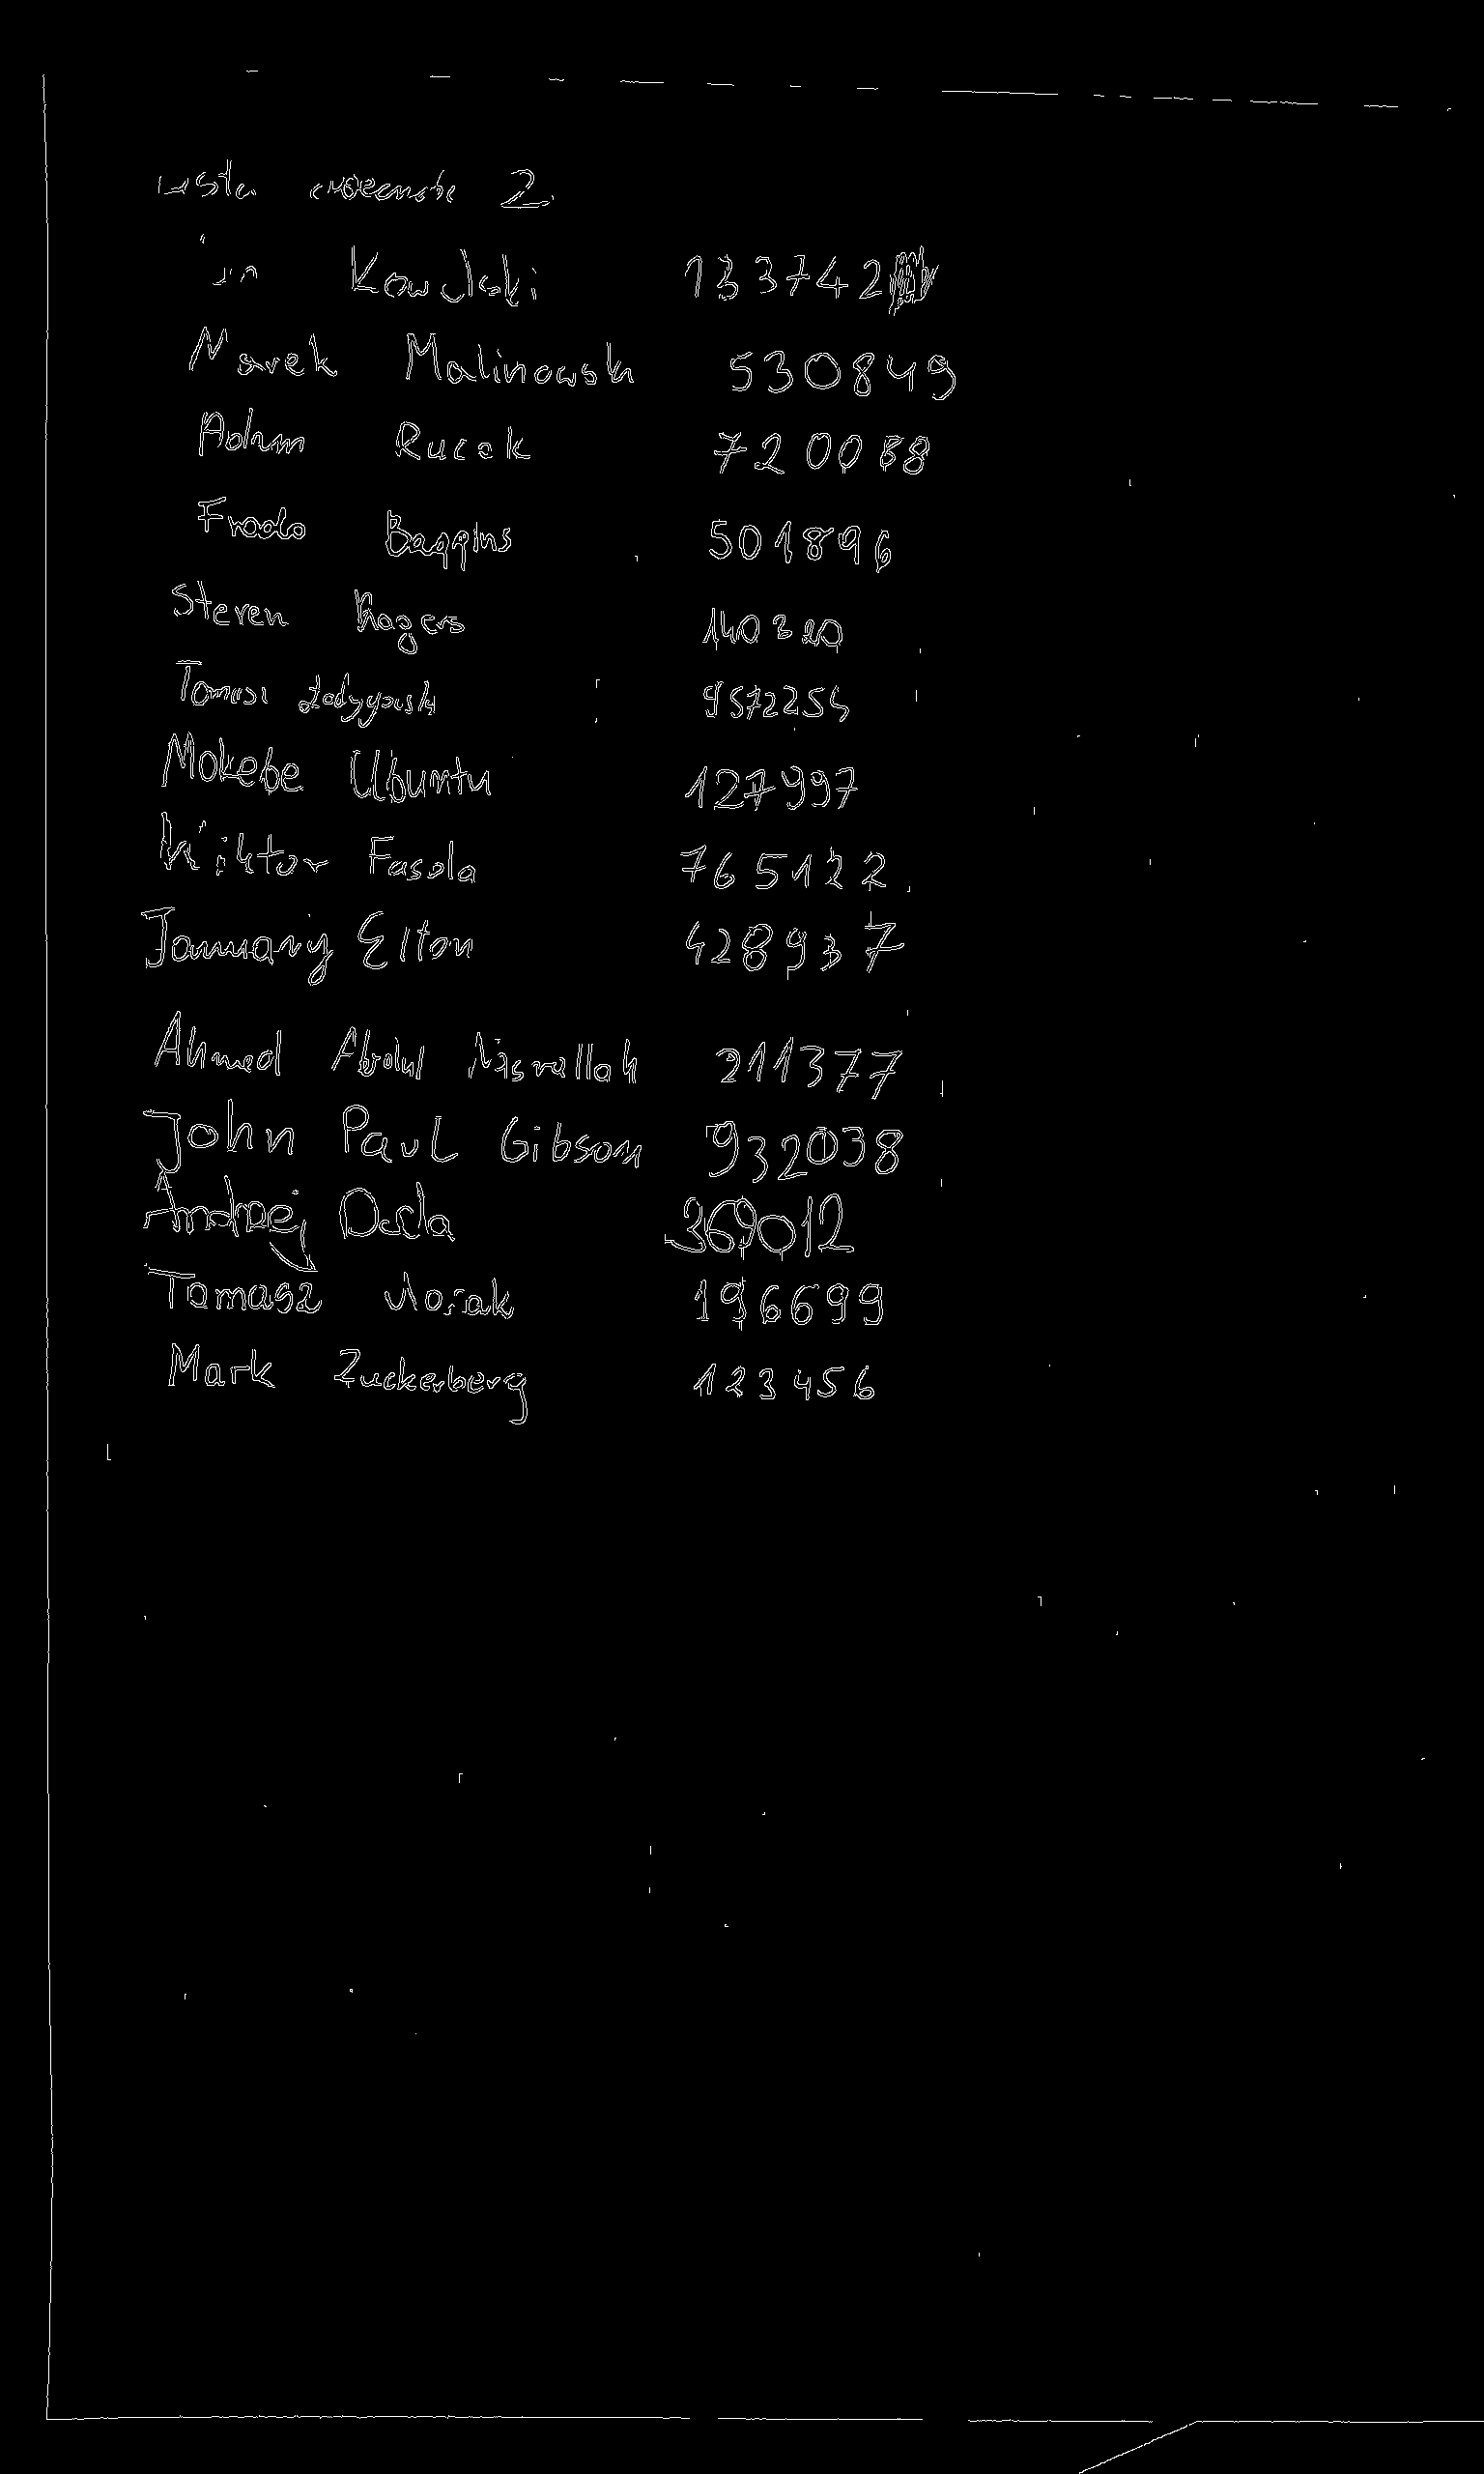 Lista obecności 2.
Jan Kowalski 133742
Marek Malinowski 530849
Adam Rucek 720088
Frodo Baggins 501896
Steven Rogers 140320
Tomasz 9572254
Mokebe Ubuntu 127997
Wiktor Fasola 765122
January Elton 428937
Ahmed Abdul Nasrallah 211377
John Paul Gibson 932038
Andrzej Duda 369012
Tomasz Nosak 196699
Mark Zuckerberg 123456